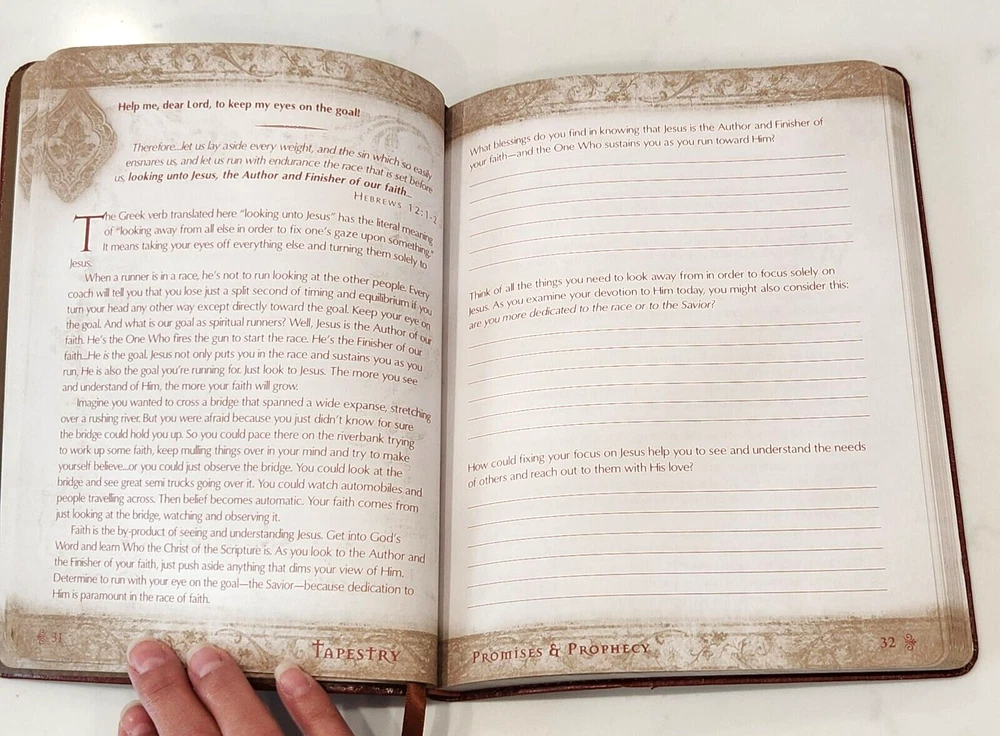 Help me, dear Lord, to keep my eyes on the goal!
Therefore...let us lay aside every weight, and the sin which so easily
ensnares us, and let us run with endurance the race that is set before
us, looking unto Jesus, the Author and Finisher of our faith...
Hebrews 12:1-2
The Greek verb translated here "looking unto Jesus" has the literal meaning
of "looking away from all else in order to fix one's gaze upon something."
It means taking your eyes off everything else and turning them solely to
Jesus.
When a runner is in a race, he's not to run looking at the other people. Every
coach will tell you that you lose just a split second of timing and equilibrium if you
turn your head any other way except directly toward the goal. Keep your eye on
the goal. And what is our goal as spiritual runners? Well, Jesus is the Author of our
faith. He's the One Who fires the gun to start the race. He's the Finisher of our
faith...He is the goal. Jesus not only puts you in the race and sustains you as you
run, He is also the goal you're running for. Just look to Jesus. The more you see
and understand of Him, the more your faith will grow.
Imagine you wanted to cross a bridge that spanned a wide expanse, stretching
over a rushing river. But you were afraid because you just didn't know for sure
the bridge could hold you up. So you could pace there on the riverbank trying
to work up some faith, keep mulling things over in your mind and try to make
yourself believe...or you could just observe the bridge. You could look at the
bridge and see great semi trucks going over it. You could watch automobiles and
people travelling across. Then belief becomes automatic. Your faith comes from
just looking at the bridge, watching and observing it.
Faith is the by-product of seeing and understanding Jesus. Get into God's
Word and learn Who the Christ of the Scripture is. As you look to the Author and
the Finisher of your faith, just push aside anything that dims your view of Him.
Determine to run with your eye on the goal—the Savior—because dedication to
Him is paramount in the race of faith.
31
Tapestry
What blessings do you find in knowing that Jesus is the Author and Finisher of
your faith—and the One Who sustains you as you run toward Him?
Think of all the things you need to look away from in order to focus solely on
Jesus. As you examine your devotion to Him today, you might also consider this:
are you more dedicated to the race or to the Savior?
How could fixing your focus on Jesus help you to see and understand the needs
of others and reach out to them with His love?
Promises & Prophecy
32